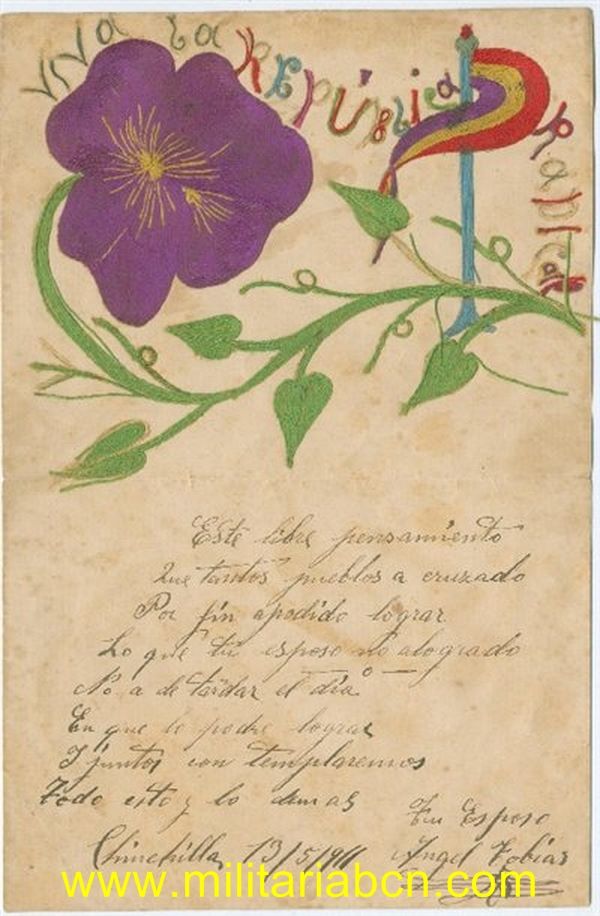 Viva la República Radical
Este libre pensamiento
Que tantos pueblos a cruzado
Por fin apodido lograr
Lo que tu esposo no alogrado
No a de tardar el día
En que lo podre lograr
Y juntos con templaremos
Todo esto y lo demas
Tu Esposo
Chinchilla 13/5/911 Angel Tobias
www.militariabcn.com